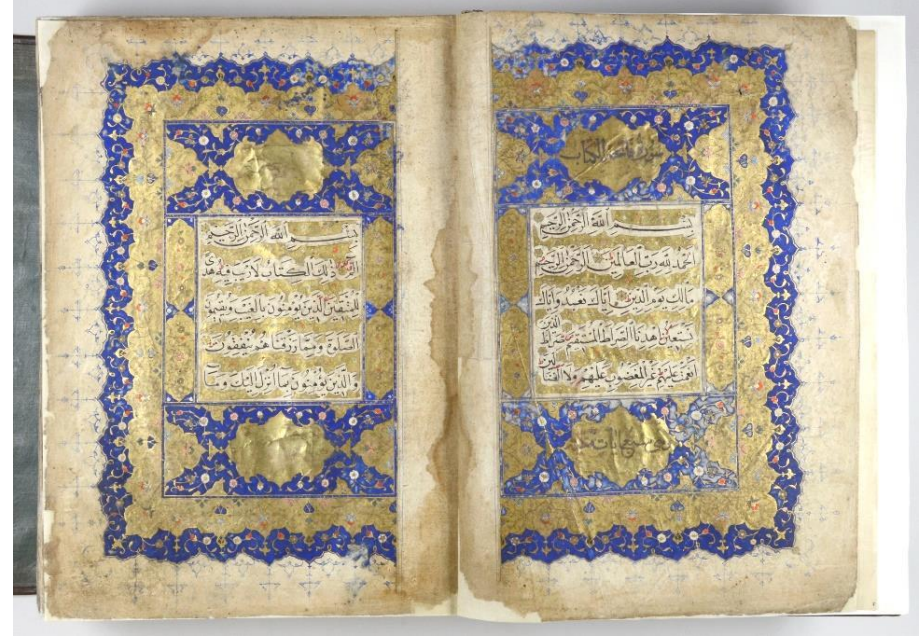 سورة فاتحة الكتاب
بسم الله الرحمن الرحيم
الحمد لله رب العالمين الرحمن الرحيم
مالك يوم الدين اياك نعبد واياك
نستعين اهدنا الصراط المستقيم صراط الذين
انعمت عليهم غير المغضوب عليهم ولا الضالين
سبع ايات
بسم الله الرحمن الرحيم
الم ذلك الكتاب لا ريب فيه هدى
للمتقين الذين يؤمنون بالغيب ويقيمون
الصلوة ومما رزقناهم ينفقون
والذين يؤمنون بما انزل اليك وما